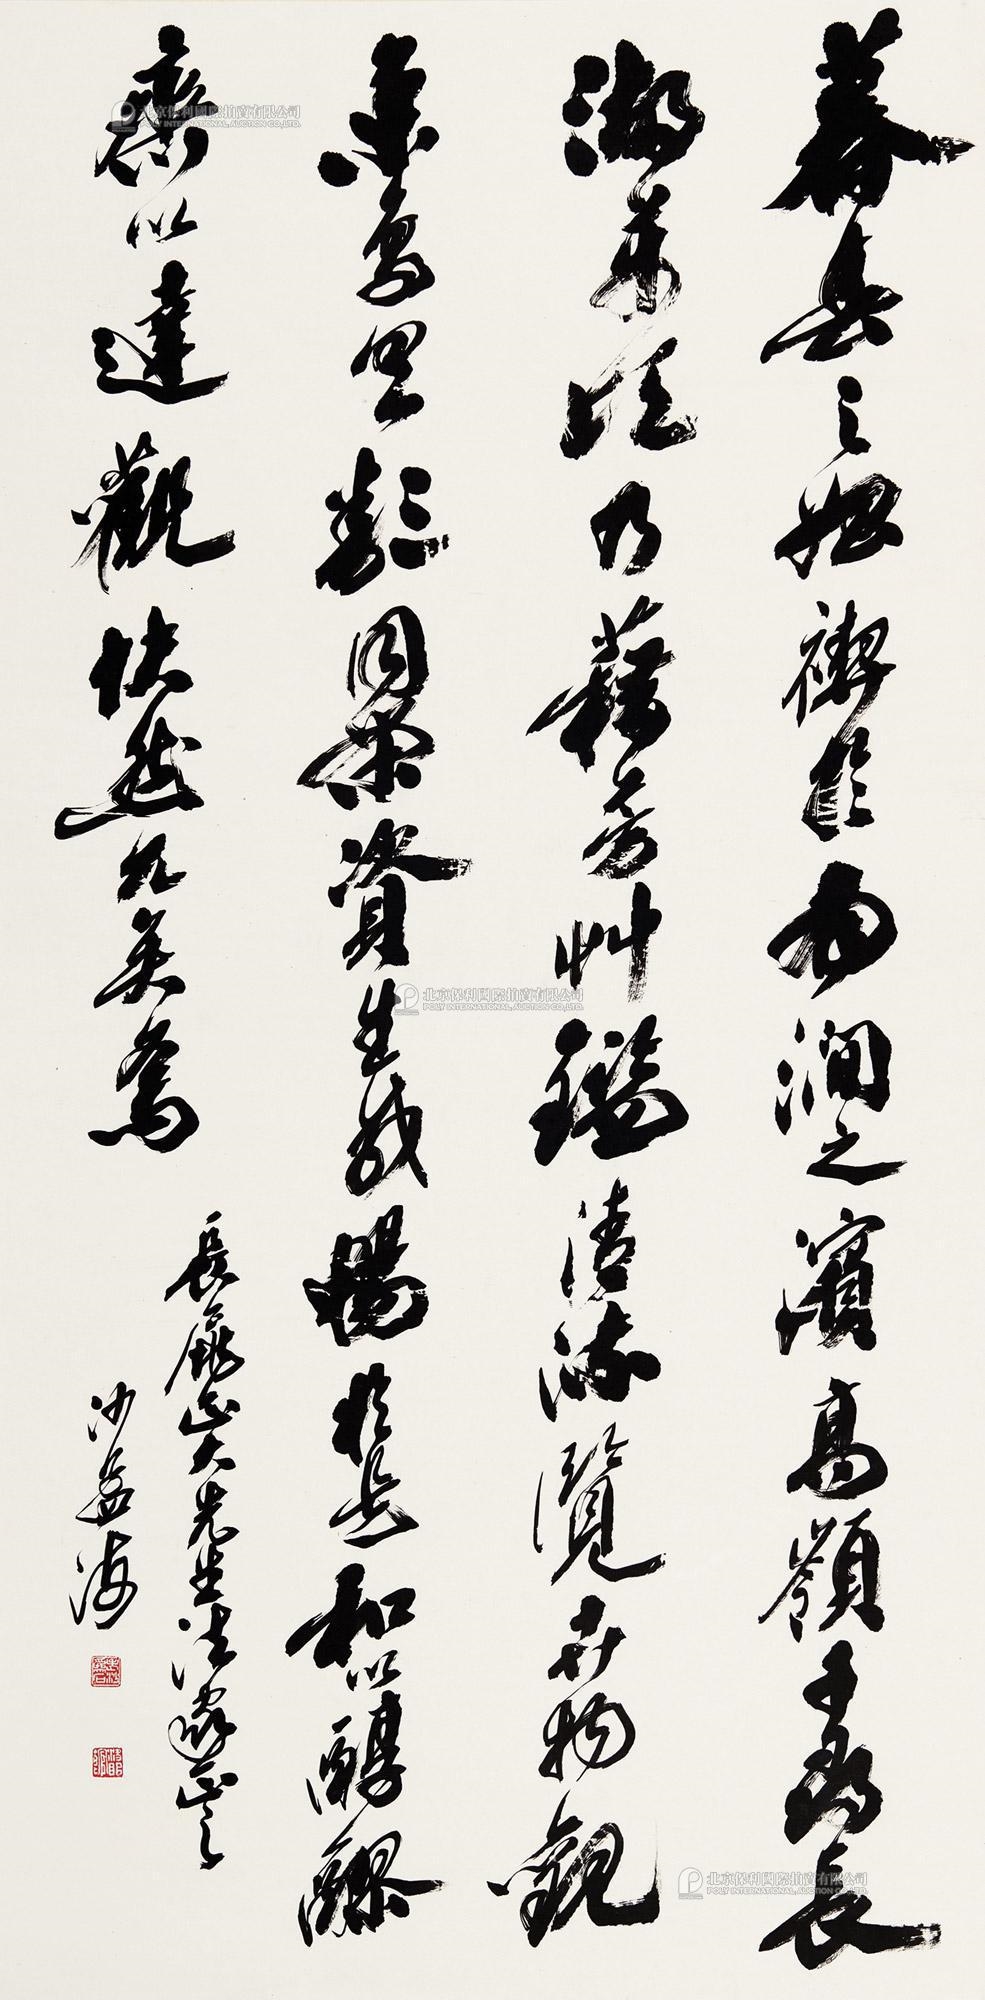 暮春之始禊於南澗之濱高嶺千尋長
湖萬頃乃藉芳艸鑑清流覽卉物觀
魚鳥具類同榮資生咸暢於是和以醇醪
齊以達觀快然兀矣焉
大先生法家正之
沙孟海
北京保利國際拍賣有限公司
POLY INTERNATIONAL AUCTION CO.,LTD.
北京保利國際拍賣有限公司
POLY INTERNATIONAL AUCTION CO.,LTD.
北京保利國際拍賣有限公司
POLY INTERNATIONAL AUCTION CO.,LTD.